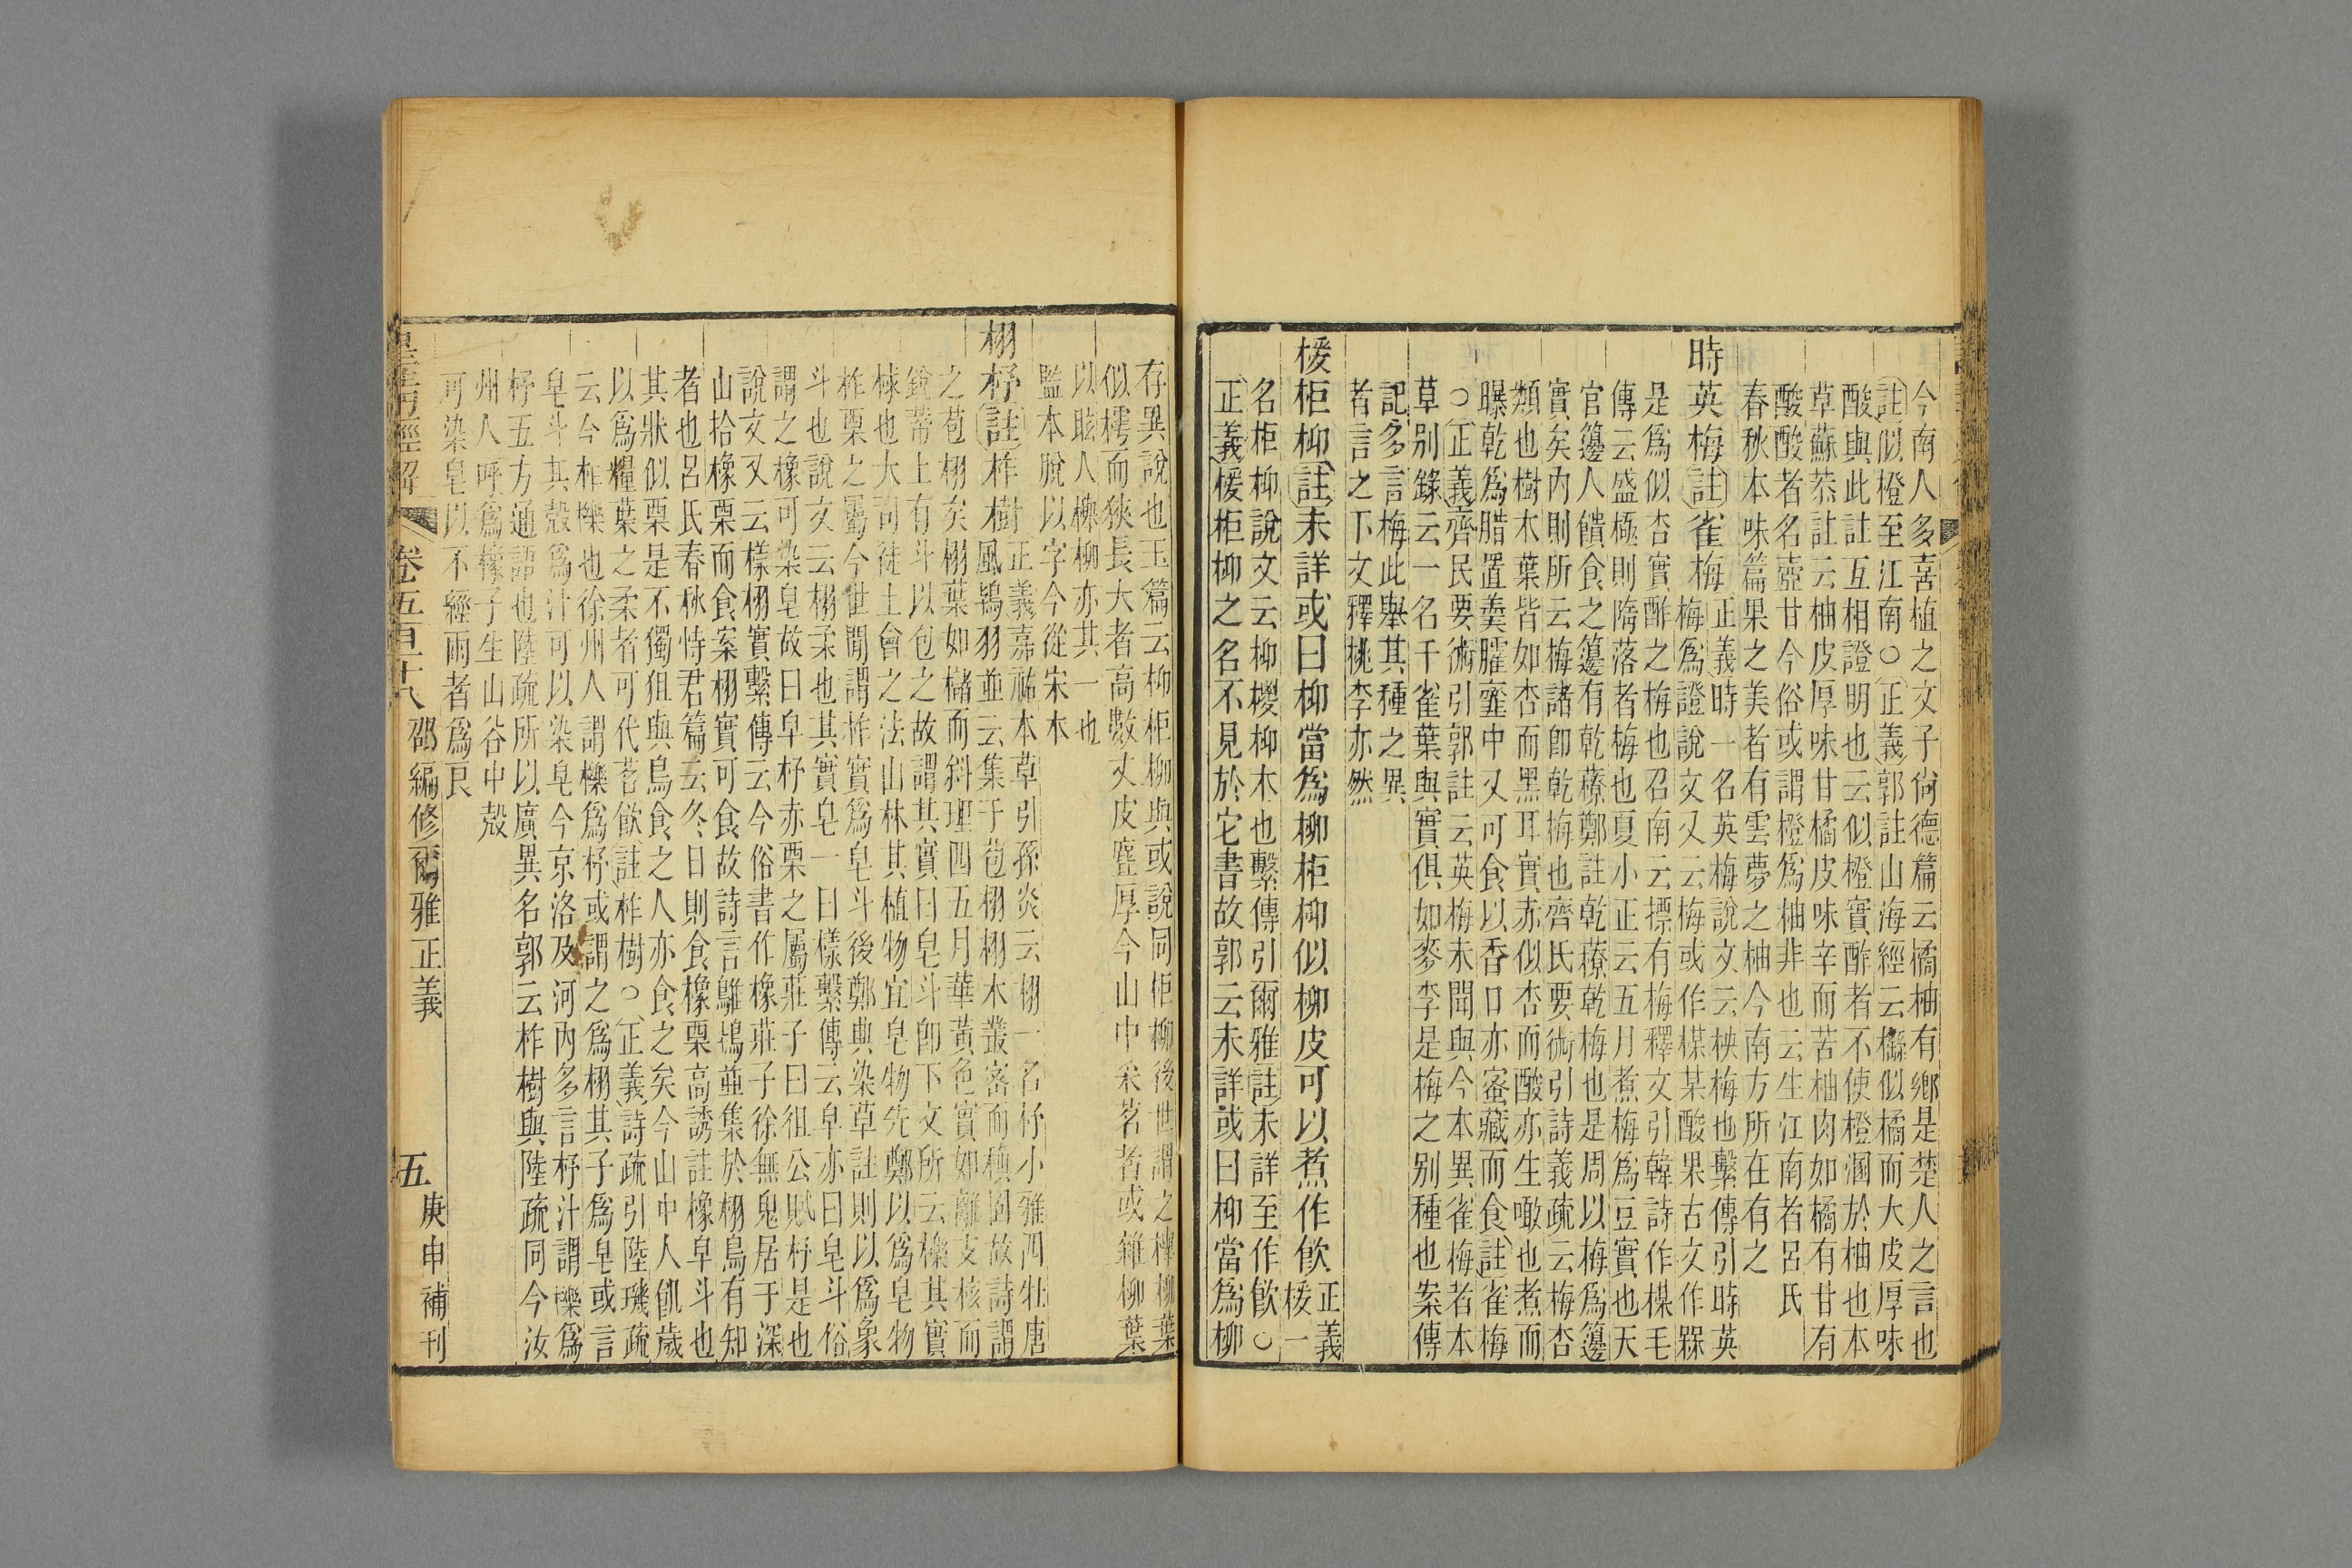 今南人多喜植之文子尙德篇云橘柚有鄉是楚人之言也
註似橙至江南○正義郭註山海經云櫾似橘而大皮厚味
酸與此註互相證明也云似橙實酢者不使橙溷於柚也本
草蘇恭註云柚皮厚味甘橘皮味辛而苦柚肉如橘有甘有
酸酸者名壺甘今俗或謂橙爲柚非也云生江南者呂氏
春秋本味篇果之美者有雲夢之柚今南方所在有之
時英梅註雀梅正義時一名英梅說文云柍梅也繫傳引時英
梅爲證說文又云梅或作楳某酸果古文作槑
是爲似杏實酢之梅也召南云摽有梅釋文引韓詩作楳毛
傳云盛極則隋落者梅也夏小正云五月煮梅爲豆實也天
官籩人饋食之籩有乾䕩鄭註乾䕩乾梅也是周以梅爲籩
實矣內則所云梅諸卽乾梅也齊氏要術引詩義疏云梅杏
類也樹木葉皆如杏而黑耳實赤似杏而酸亦生噉也煮而
曝乾爲腊置羹臛齏中又可食以香口亦蜜藏而食註雀梅
○正義齊民要術引郭註云英梅未聞與今本異雀梅者本
草别錄云一名千雀葉與實俱如麥李是梅之别種也案傳
記多言梅此舉其種之異
者言之下文釋桃李亦然
楥柜桏註未詳或曰桏當爲柳柜桏似柳皮可以煮作飲正義楥一
名柜桏說文云桏㮨桏木也繫傳引爾雅註未詳至作飲○
正義楥柜桏之名不見於它書故郭云未詳或曰桏當爲柳
存異說也玉篇云桏柜柳與或說同柜柳後世謂之櫸柳葉
似樗而狹長大者高數丈皮麤厚今山中采茗者或雜柳葉
以眩人櫸柳亦其一也
監本脫以字今從宋本
栩杼註柞樹正義嘉祐本草引孫炎云栩一名杼小雅四牡唐
風鴇羽並云集于苞栩栩木叢密而積固故詩謂
之苞栩矣栩葉如櫧而斜理四五月華黃色實如離支核而
銳蒂上有斗以包之故謂其實曰皂斗卽下文所云櫟其實
梂也大司徒土會之法山林其植物宜皂物先鄭以爲皂物
柞栗之屬今世閒謂柞實爲皂斗後鄭典染草註則以爲象
斗也說文云栩柔也其實皂一曰樣繫傳云皁亦曰皂斗俗
謂之橡可染皂故曰皁杼赤栗之屬莊子曰徂公賦杼是也
說文又云樣栩實繫傳云今俗書作橡莊子徐無鬼居于深
山拾橡栗而食案栩實可食故詩言鵻鴇並集於栩鳥有知
者也呂氏春秋恃君篇云冬日則食橡栗高誘註橡皁斗也
其狀似栗是不獨狙與鳥食之人亦食之矣今山中人飢歲
以爲糧葉之柔者可代茗飲註柞樹○正義詩疏引陸璣疏
云今柞櫟也徐州人謂櫟爲杼或謂之爲栩其子爲皂或言
皂斗其殼爲汁可以染皂今京洛及河內多言杼汁謂櫟爲
杼五方通語也陸疏所以廣異名郭云柞樹與陸疏同今汝
州人呼爲橡子生山谷中殼
可染皂以不經雨者爲良
皇淸經解 卷五百十八 邵編修爾雅正義 五 庚申補刊